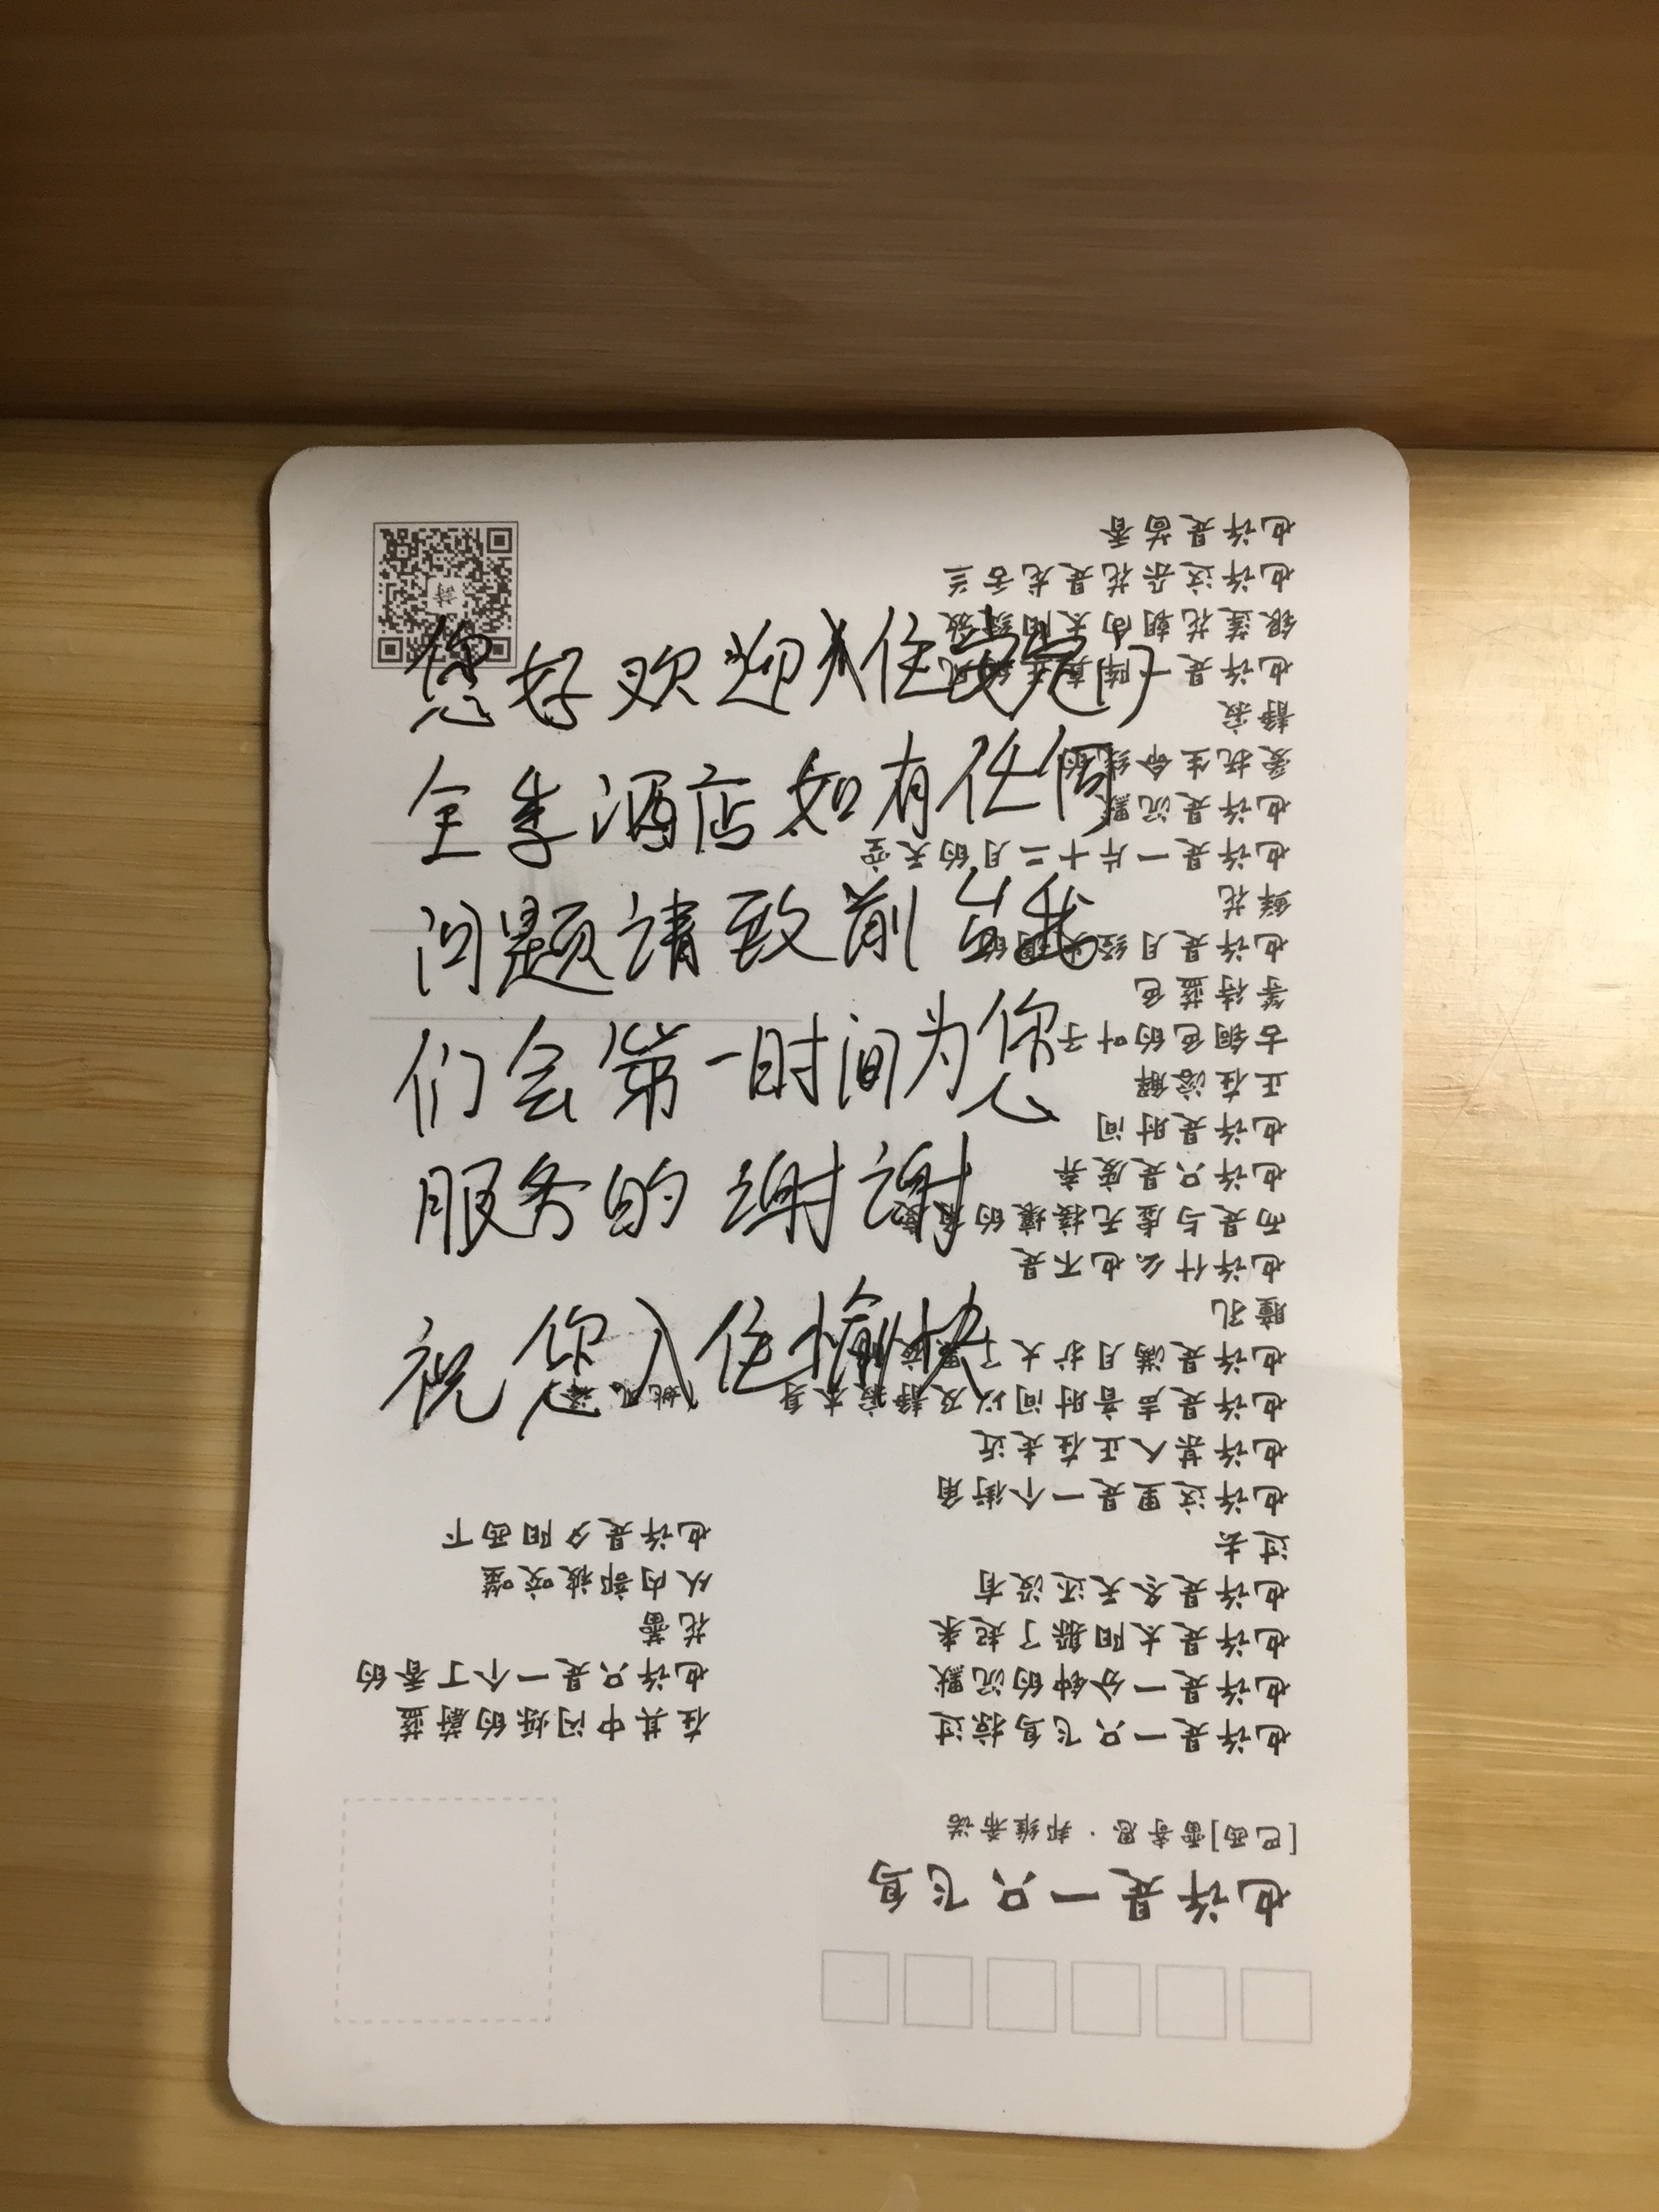 您好欢迎入住安定门
全季酒店如有任何
问题请致前台我
们会第一时间为您
服务的 谢谢
祝您入住愉快
也许是一只飞鸟
[巴西]雷寺恩·邦维希诺
也许是一只飞鸟掠过
也许是一分钟的沉默
也许是太阳躲了起来
也许是冬天还没有
过去
也许这里是一个街角
也许某人正在走近
也许是声音时间以及静寂本身
也许是满月扩大了
瞳孔
也许什么也不是
而是与虚无接壤的
也许只是废弃
也许是时间
正在溶解
古铜色的叶子
等待蓝色
也许是月经
鲜花
也许是一片十二月的天空
也许是沉默
爱抚生命线的
静寂
也许是一阵
银莲花朝向太阳绽放
也许这朵花是龙舌兰
也许是茴香
在其中闪烁的蔚蓝
也许只是一个丁香的
花蕾
从内部被咬噬
也许是夕阳西下
姚风 译
诗